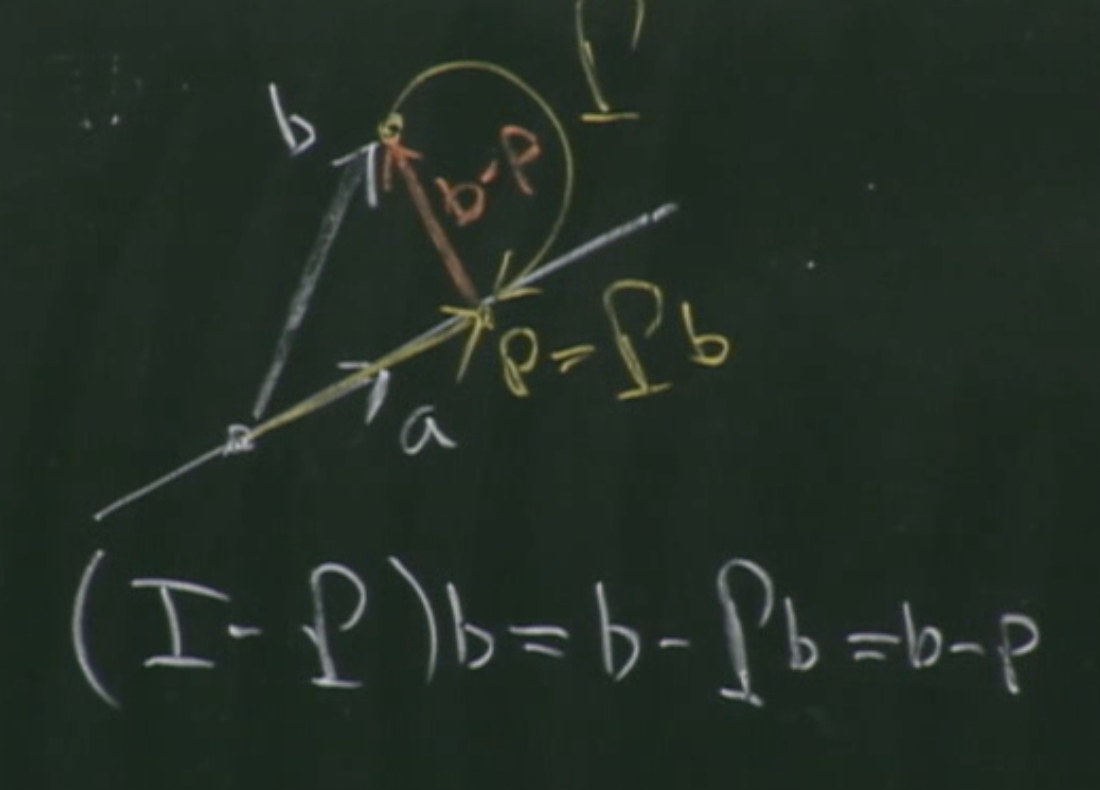 P
b
b-p
p = Pb
a
(I - P)b = b - Pb = b - p